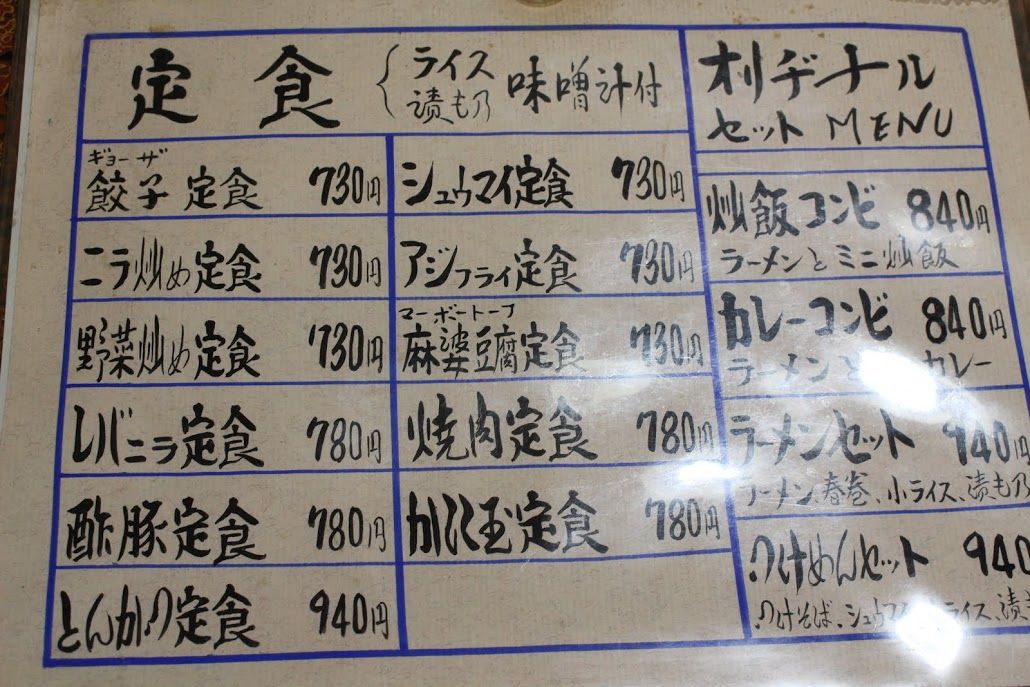 定食
ライス
漬もの
味噌汁付
ギョーザ
餃子定食 730円
ニラ炒め定食 730円
野菜炒め定食 730円
レバニラ定食 780円
酢豚定食 780円
とんかつ定食 940円
シュウマイ定食 730円
アジフライ定食 730円
マーボートーフ
麻婆豆腐定食 730円
焼肉定食 780円
かに玉定食 780円
オリヂナル
セットMENU
炒飯コンビ 840円
ラーメンとミニ炒飯
カレーコンビ 840円
ラーメンと カレー
ラーメンセット 940円
ラーメン春巻、小ライス、漬もの
つけめんセット 940
つけそば、シュウマイ ライス、漬